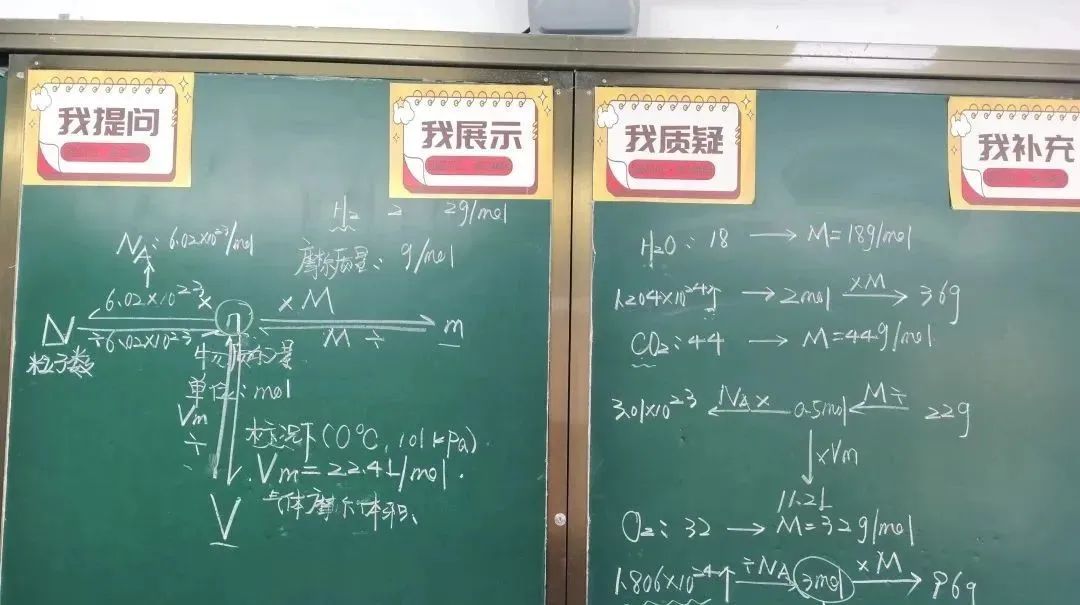 我提问
我展示
H₂ 2 2g/mol
N_A: 6.02×10²³/mol
摩尔质量: g/mol
6.02×10²³ ×
×M
N n m
÷6.02×10²³
M ÷
粒子数
物质的量
单位: mol
Vm
÷
标况下(0℃, 101kPa)
Vm=22.4L/mol.
V
气体摩尔体积
我质疑
我补充
H₂O: 18 → M=18g/mol
1.204×10²⁴个 → 2mol ×M → 36g
CO₂: 44 → M=44g/mol
3.01×10²³ ← N_A× 0.5mol ← M÷ 22g
↓ ×Vm
11.2L
O₂: 32 → M=32g/mol
1.806×10²⁴个 ÷N_A → 3mol ×M → 96g